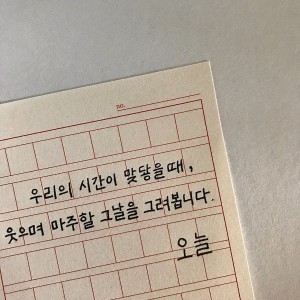 no.
우리의 시간이 맞닿을 때,
웃으며 마주할 그날을 그려봅니다.
오늘